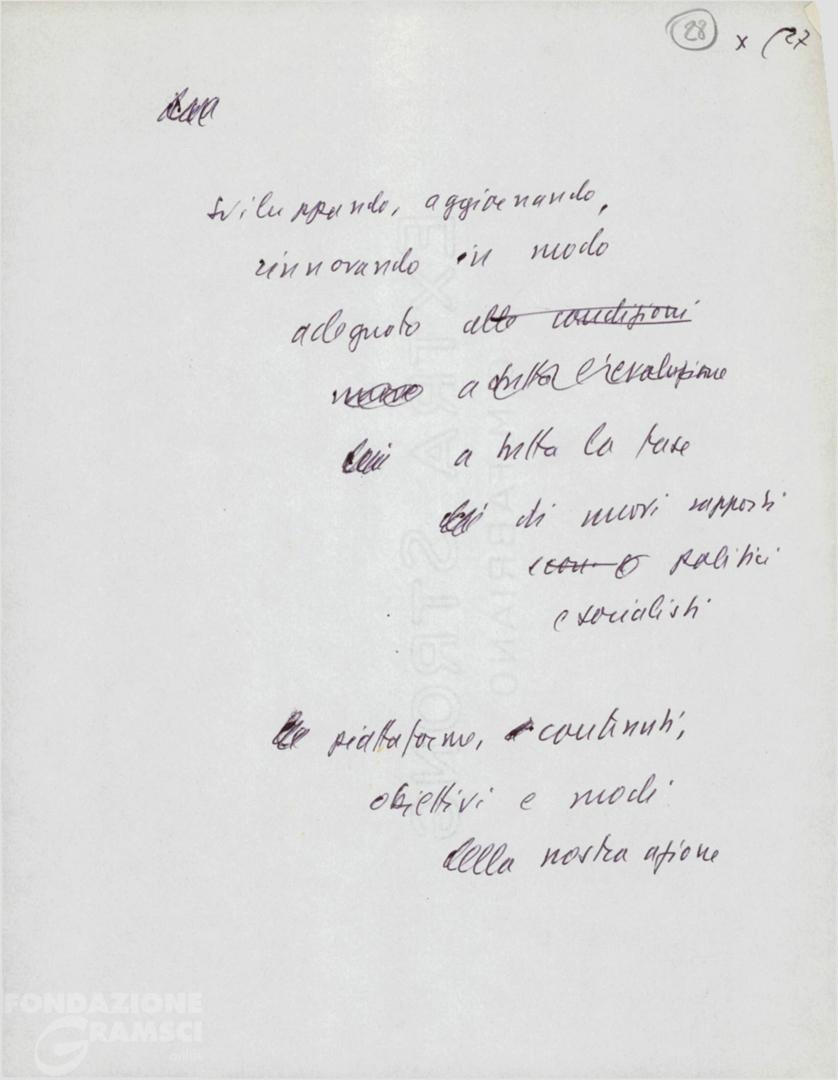 28 x (27
sviluppando, aggiornando,
rinnovando in modo
adeguato alle condizioni
nuove a tutta l'evoluzione
a tutta la fase
di nuovi rapporti
con politici
e socialisti
piattaforme, contenuti,
obiettivi e modi
della nostra azione
EXTRA STRONG
FABRIANO
FONDAZIONE
GRAMSCI
online